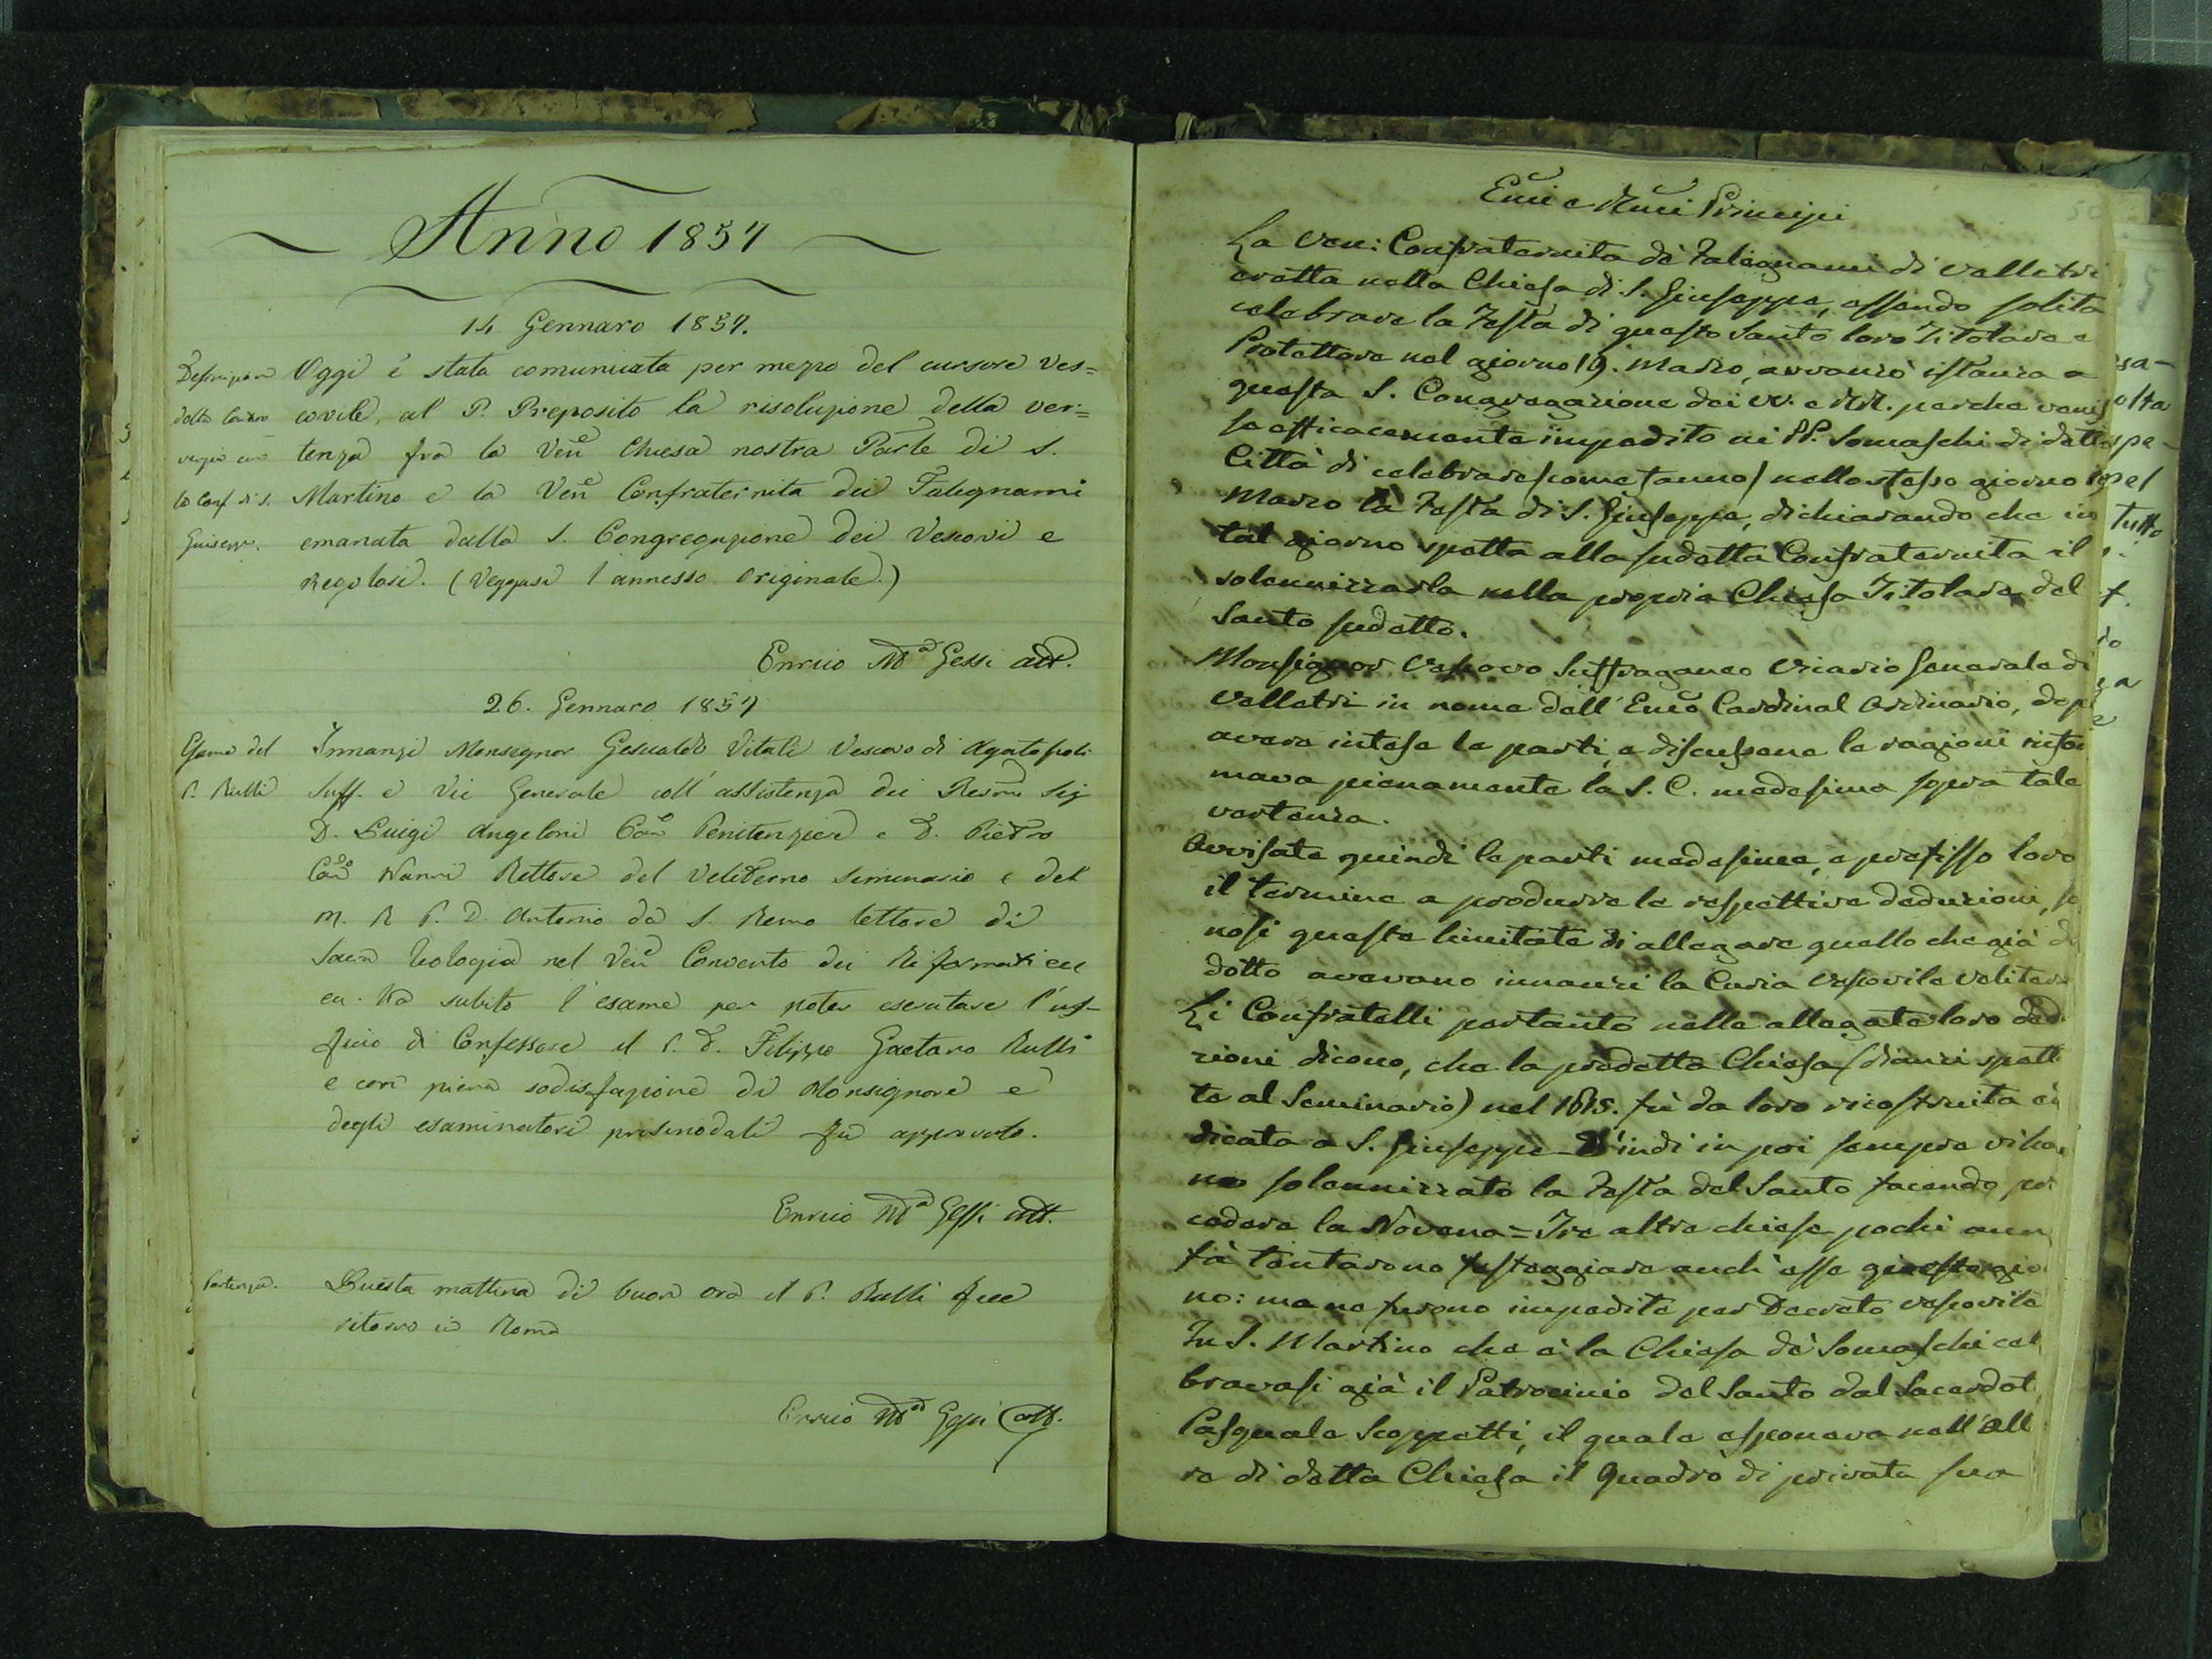 Anno 1857
14 Gennaro 1857.
Definizione
della contro
versia con
la Conf. di S.
Giuseppe.
Oggi è stata comunicata per mezzo del cursore Ves=
covile, al P. Preposito la risoluzione della ver=
tenza fra la Ven Chiesa nostra Parle di S.
Martino e la Ven Confraternita dei Falegnami
emanata dalla S. Congregazione dei Vescovi e
Regolari. (Veggasi l'annesso originale.)
Enrico Ma Gessi att.
26. Gennaro 1857
Esame del
P. Rulli
Innanzi Monsignor Gesualdo Vitali Vescovo di Agatopoli
Suff. e Vic Generale coll' assistenza dei Revmi Sig
D. Luigi Angeloni Can Penitenziere e D. Pietro
Can Nanni Rettore del Veliterno Seminario e del
M. R P. D. Antonio da S. Remo lettore di
Sacra teologia nel Ven Convento dei Riformati ecc
ecc. ha subito l'esame per poter esercitare l'uf-
ficio di Confessore il P. D. Filippo Gaetano Rulli
e con piena sodisfazione di Monsignore e
degli esaminatori prosinodali fu approvato.
Enrico Ma Gessi att.
Partenza.
Questa mattina di buon ora il P. Rulli fece
ritorno in Roma
Enrico Ma Gessi att.
Emi e Rmi Principi
La Ven: Confraternita de' Falegnami di Velletri
eretta nella Chiesa di S. Giuseppe, essendo solita
celebrare la Festa di questo Santo loro Titolare e
Protettore nel giorno 19. Marzo, avvanzò istanza a
questa S. Congregazione dei VV. e RR. perche venis
se efficacemente impedito ai PP. Somaschi di detta
Città di celebrare (come fanno) nello stesso giorno 19
Marzo la Festa di S. Giuseppe, dichiarando che in
tal giorno spetta alla sudetta Confraternita il
solennizzarla nella propria Chiesa Titolare del
Santo sudetto.
Monsignor Vescovo Suffraganeo Vicario Generale di
Velletri in nome dell' Emo Cardinal Ordinario, dopo
avere intese le parti, e discussene le ragioni infor
mava pienamente la S. C. medesima sopra tale
vertenza.
Avvisate quindi le parti medesime, e prefisso loro
il termine a produrre le respettive deduzioni, so
nosi queste limitate di allegare quello che già de
dotto avevano innanzi la Curia Vescovile Veliter
Li Confratelli pertanto nelle allegate loro ded
zioni dicono, che la predetta Chiesa (dianzi spett
te al Seminario) nel 1815. fù da loro ricostruita e
dicata a S. Giuseppe - D'indi in poi sempre vi ha
no solennizzato la Festa del Santo facendo pre
cedere la Novena = Tre altre chiese pochi anni
fà tentarono festeggiare anch' esse questo gio
no: ma ne furono impedite per Decreto vescovile
In S. Martino che è la Chiesa de' Somaschi cel
bravasi già il Patrocinio del Santo dal Sacerdot
Pasquale Scoppetti, il quale esponeva nell' Alt
re di detta Chiesa il Quadro di privata sua